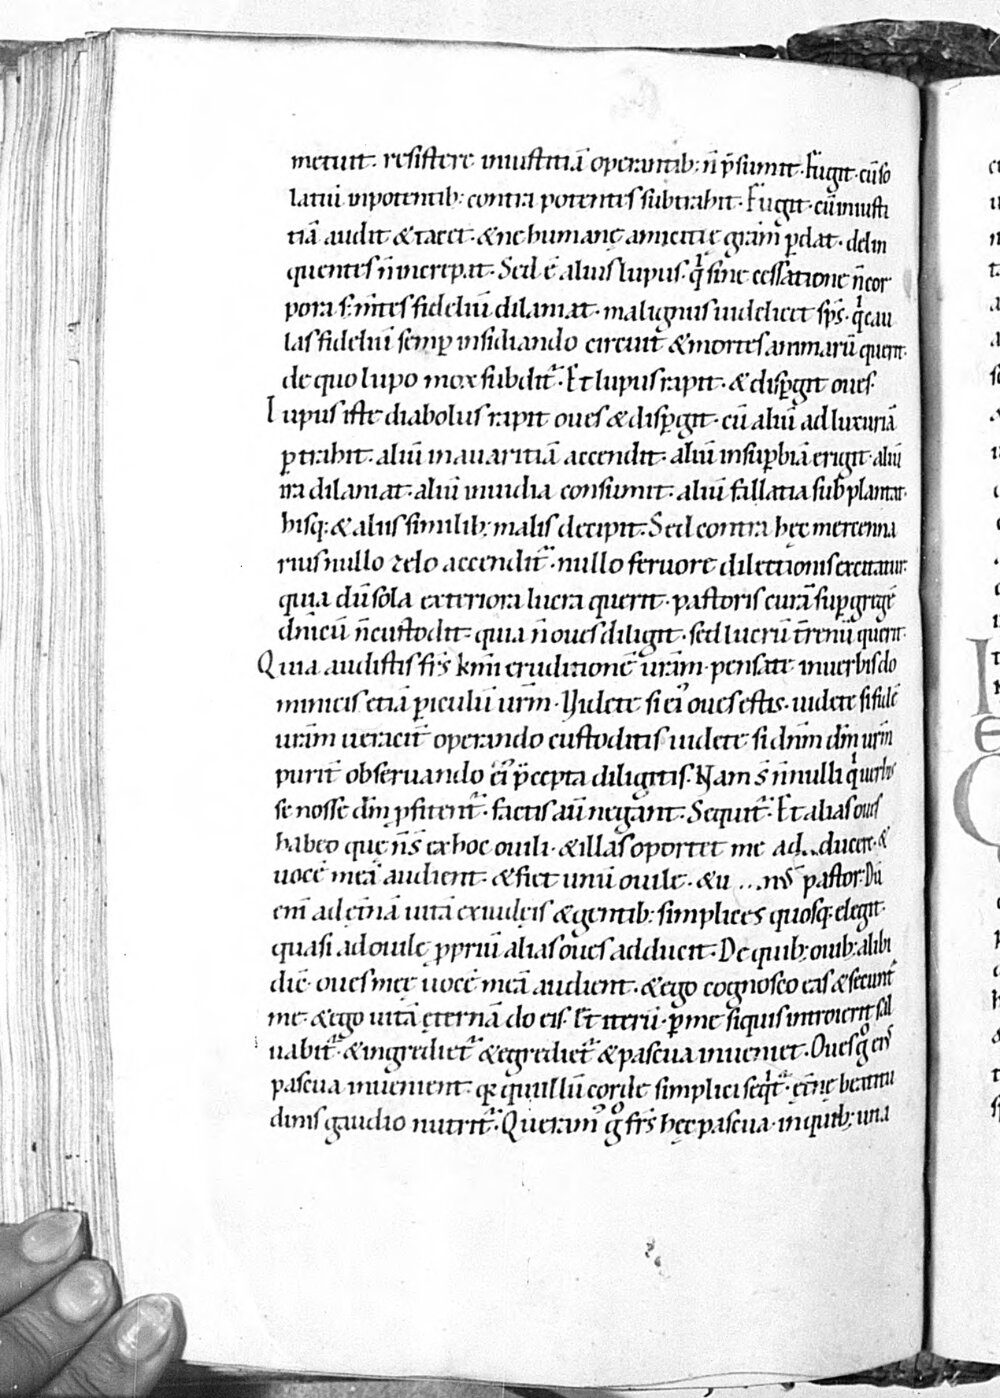 metuit. resistere iniustitiā operantib; n̄ p̄sumit. Fugit. cū so
latiū inpotentib; contra potentes subtrahit. Fugit. cū iniusti
tiā audit & tacet. & ne humanę amicitię grām p̄dat. delin
quentes n̄ increpat. Sed ē alius lupus. q̄ sine cessatione n̄ cor
pora s; m̄tes fideliū dilaniat. malignus uidelicet sp̄s. q̄ cau
las fideliū semp̄ insidiando circuit & mortes animarū querit.
de quo lupo mox subdit̄. Et lupus rapit. & disp̄git oues.
Lupus iste diabolus rapit oues & disp̄git. cū aliū ad luxuriā
p̄trahit. aliū in auaritiā accendit. aliū in sup̄biā erigit. aliū
ira dilaniat. aliū inuidia consumit. aliū fallatia subplantat.
hisq; & aliis similib; malis decipit. Sed contra hęc mercenna
rius nullo zelo accendit̄. nullo feruore dilectionis excitatur.
quia dū sola exteriora lucra querit. pastoris curā sup gregē
dn̄icū n̄ custodit. quia n̄ oues diligit. sed lucrū t̄renū querit.
Quia audistis fr̄s km̄i eruditionē urām. pensate in uerbis do
minicis etiā p̄iculū urm̄. Uidete si ei' oues estis. uidete si fidē
urām ueracit̄ operando custoditis uidete si dn̄m dm̄ urm̄
purit̄ obseruando ei' p̄cepta diligitis. Nam s̄ n̄nulli q̄ uerbis
se nosse dm̄ p̄fitent̄. factis aū negant. Sequit̄. Et alias oues
habeo quę n̄ s̄ ex hoc ouili. & illas oportet me ad..ducere. &
uocē meā audient. & fiet unū ouile. & u...n' pastor. Dū
eni ad ęt̄nā uitā ex iudęis & gentib; simplices quosq; elegit.
quasi ad ouile p̄priū alias oues adducit. De quib; ouib; alibi
dic̄. oues meę uocē meā audient. & ego cognosco eas & secunt̄
me. & ego uitā ęternā do eis. Et iterū. p̄ me si quis introierit sal
uabit̄. & ingrediet̄ & egrediet̄ & pascua inueniet. Oues g° ei'
pascua inuenient. q; quisillū corde simplici seq̄t̄. ęt̄nę beatitu
dinis gaudio nutrit̄. Queram' g° fr̄s hęc pascua. in quib; una